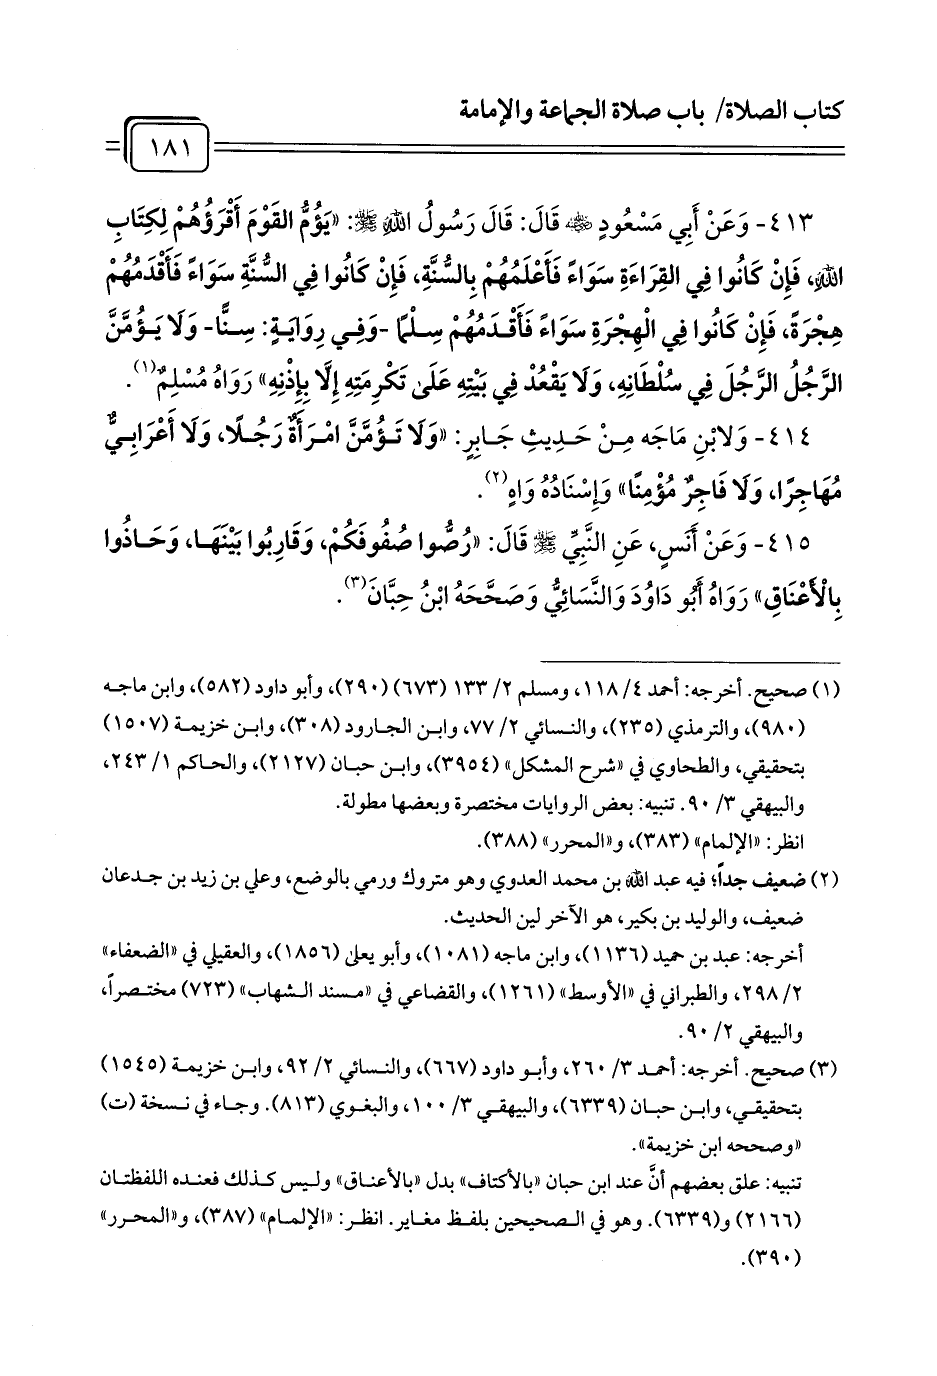 كتاب الصلاة/ باب صلاة الجماعة والإمامة
١٨١
٤١٣- وَعَنْ أَبِي مَسْعُودٍ ﷺ قَالَ: قَالَ رَسُولُ اللهِ ﷺ: «يَؤُمُّ القَوْمَ أَقْرَؤُهُمْ لِكِتَابِ
اللهِ، فَإِنْ كَانُوا فِي القِرَاءَةِ سَوَاءً فَأَعْلَمُهُمْ بِالسُّنَّةِ، فَإِنْ كَانُوا فِي السُّنَّةِ سَوَاءً فَأَقْدَمُهُمْ
هِجْرَةً، فَإِنْ كَانُوا فِي الْهِجْرَةِ سَوَاءً فَأَقْدَمُهُمْ سِلْمًا -وَفِي رِوَايَةٍ: سِنًّا- وَلَا يَؤُمَّنَّ
الرَّجُلُ الرَّجُلَ فِي سُلْطَانِهِ، وَلَا يَقْعُدْ فِي بَيْتِهِ عَلَى تَكْرِمَتِهِ إِلَّا بِإِذْنِهِ» رَوَاهُ مُسْلِمٌ(١).
٤١٤- وَلابْنِ مَاجَه مِنْ حَدِيثِ جَابِرٍ: «وَلَا تَؤُمَّنَّ امْرَأَةٌ رَجُلًا، وَلَا أَعْرَابِيٌّ
مُهَاجِرًا، وَلَا فَاجِرٌ مُؤْمِنًا» وَإِسْنَادُهُ وَاهٍ(٢).
٤١٥- وَعَنْ أَنَسٍ، عَنِ النَّبِيِّ ﷺ قَالَ: «رُصُّوا صُفُوفَكُمْ، وَقَارِبُوا بَيْنَهَا، وَحَاذُوا
بِالْأَعْنَاقِ» رَوَاهُ أَبُو دَاوُدَ وَالنَّسَائِيُّ وَصَحَّحَهُ ابْنُ حِبَّانَ(٣).
(١) صحيح. أخرجه: أحمد ٤/ ١١٨، ومسلم ٢/ ١٣٣ (٦٧٣) (٢٩٠)، وأبو داود (٥٨٢)، وابن ماجه
(٩٨٠)، والترمذي (٢٣٥)، والنسائي ٢/ ٧٧، وابن الجارود (٣٠٨)، وابن خزيمة (١٥٠٧)
بتحقيقي، والطحاوي في «شرح المشكل» (٣٩٥٤)، وابن حبان (٢١٢٧)، والحاكم ١/ ٢٤٣،
والبيهقي ٣/ ٩٠. تنبيه: بعض الروايات مختصرة وبعضها مطولة.
انظر: «الإلمام» (٣٨٣)، و«المحرر» (٣٨٨).
(٢) ضعيف جداً؛ فيه عبد الله بن محمد العدوي وهو متروك ورمي بالوضع، وعلي بن زيد بن جدعان
ضعيف، والوليد بن بكير، هو الآخر لين الحديث.
أخرجه: عبد بن حميد (١١٣٦)، وابن ماجه (١٠٨١)، وأبو يعلى (١٨٥٦)، والعقيلي في «الضعفاء»
٢/ ٢٩٨، والطبراني في «الأوسط» (١٢٦١)، والقضاعي في «مسند الشهاب» (٧٢٣) مختصراً،
والبيهقي ٢/ ٩٠.
(٣) صحيح. أخرجه: أحمد ٣/ ٢٦٠، وأبو داود (٦٦٧)، والنسائي ٢/ ٩٢، وابن خزيمة (١٥٤٥)
بتحقيقي، وابن حبان (٦٣٣٩)، والبيهقي ٣/ ١٠٠، والبغوي (٨١٣). وجاء في نسخة (ت)
«وصححه ابن خزيمة».
تنبيه: علق بعضهم أنَّ عند ابن حبان «بالأكتاف» بدل «بالأعناق» وليس كذلك فعنده اللفظتان
(٢١٦٦) و(٦٣٣٩). وهو في الصحيحين بلفظ مغاير. انظر: «الإلمام» (٣٨٧)، و«المحرر»
(٣٩٠).